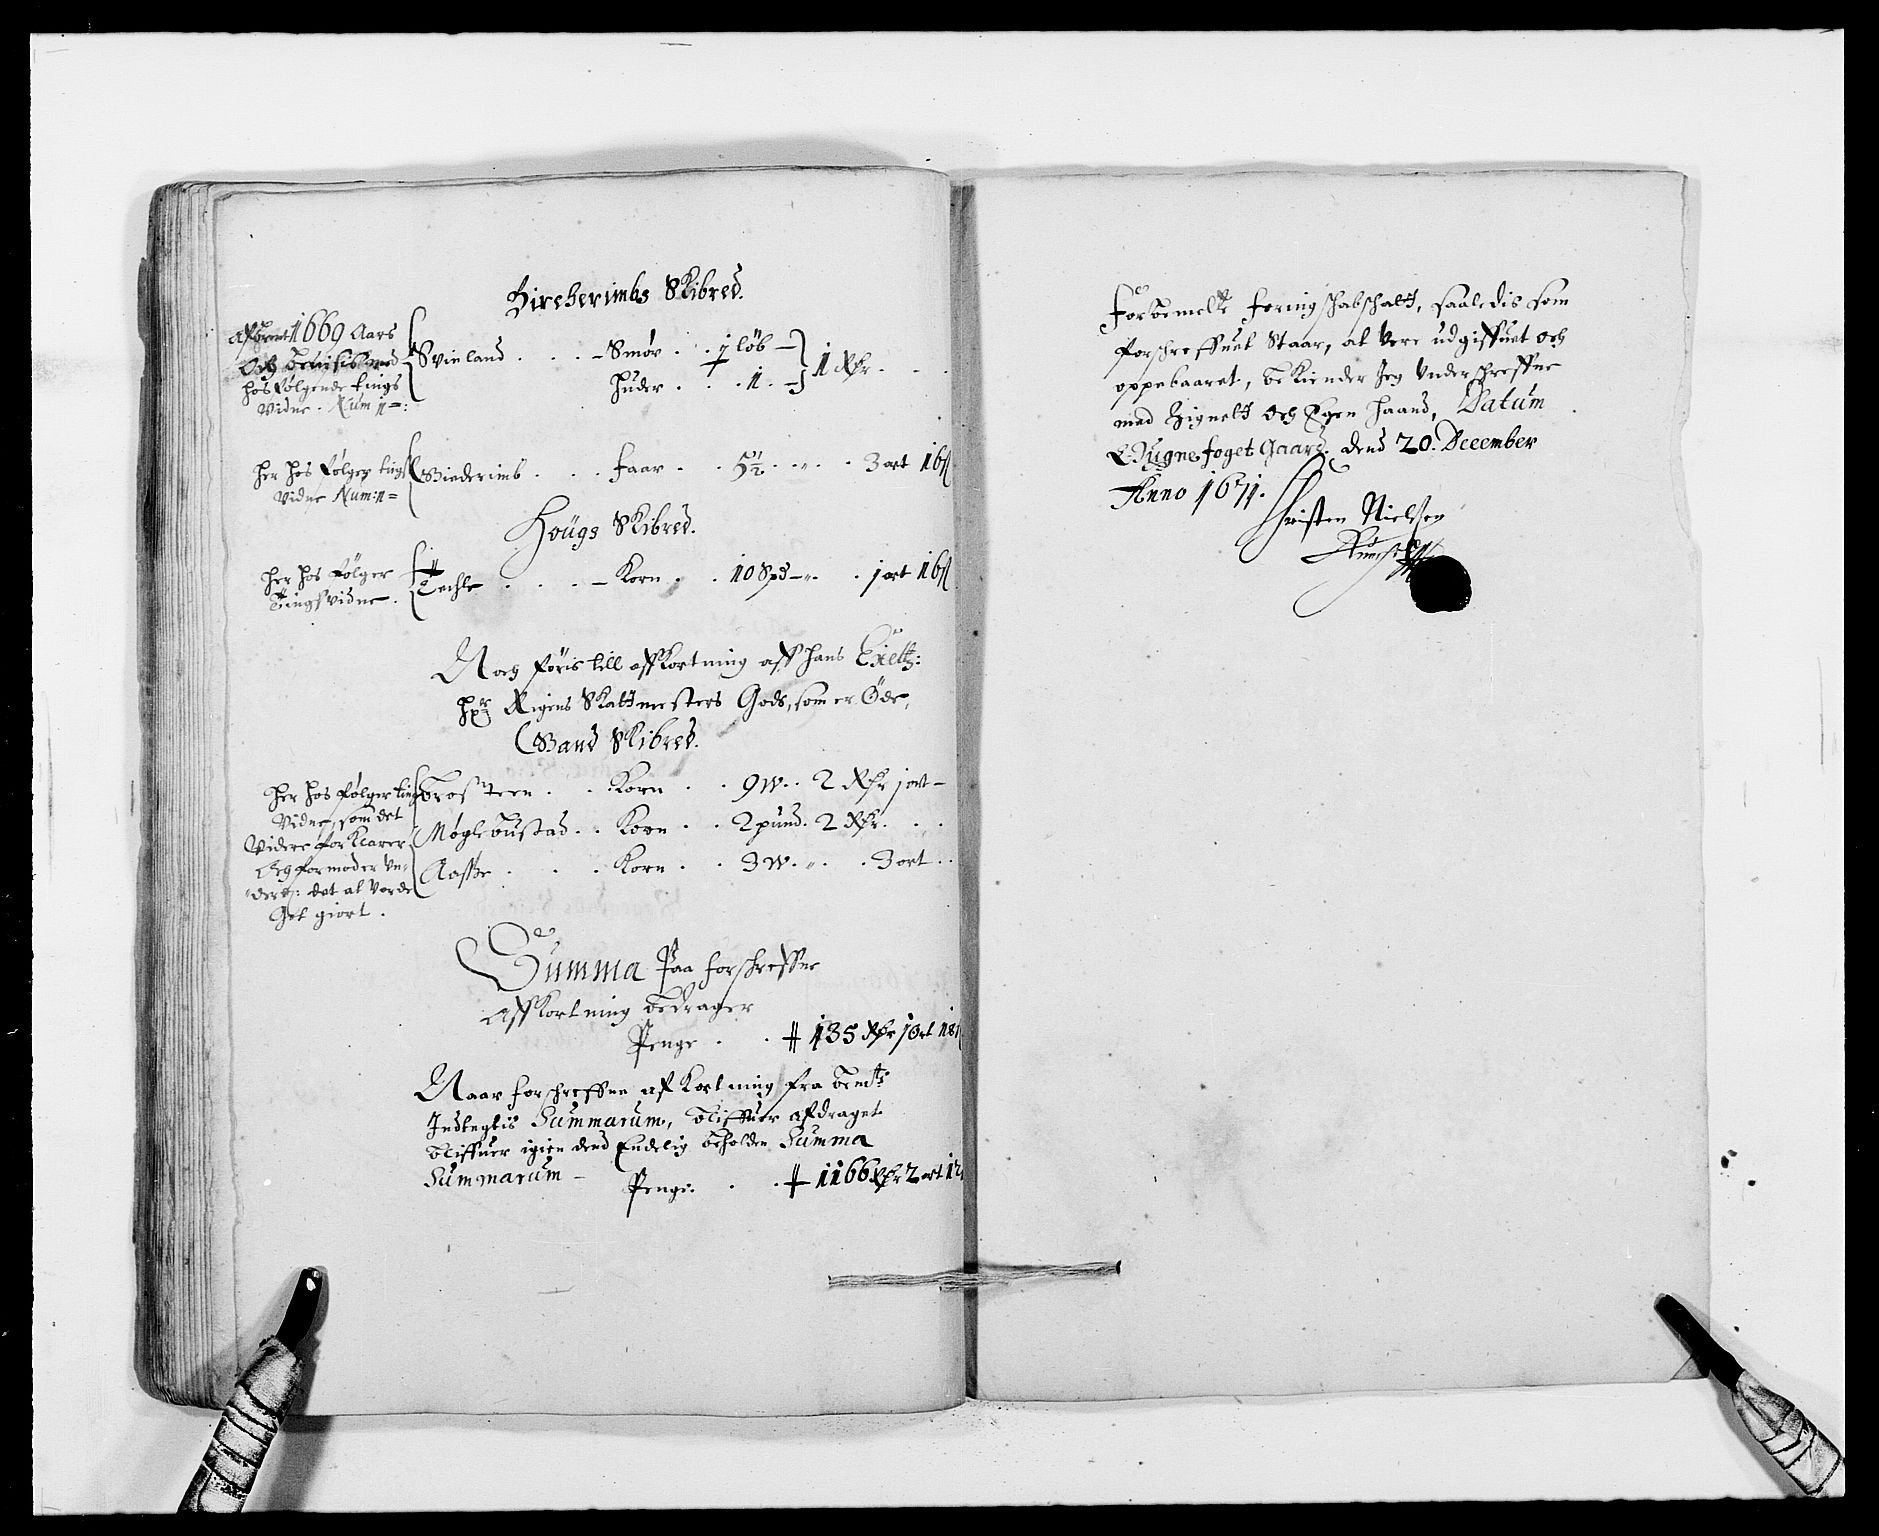 Bircherimbs Skibred.
afbrent 1669 Aars
Och bevisis med
hos følgende tings
Vidne. Num 1=:
Svinland . . . - Smør . . 1 löb -
Huder . . . 1. - } 1 Rdr . . .
her hos følger tings
Vidne Num: 1=
Birderimb . . . faar . . 5½ . „ . . 3 ort 16 ß
Hougs Skibred.
her hos følger
Tingsvidne .
Techle . . . . - Korn . . 10 Spd - „ . . 1 ort 16 ß
Noch føris till affkortning aff hans Exeltz:
Hr Rigens Skattmesters Gods, som er Öde,
Wand Skibred.
her hos følger ting
Vidne, som det
Videre forklarer
Jeg formoder Un-
derd: det at Vorde
Got giort .
Trosteen . . . Korn . . 9 W . . 2 Rdr 1 ort -
Møglebustad . . Korn . . 2 pund . 2 Rdr . . .
Aasse . . . . Korn . . 3 W . „ . . 3 ort . .
Summa Paa forschreffne
Affkortning bedrager
Penge . . 135 Rdr 1 Ort 18 ß
Naar forschreffne afkortning fra bemte
Indtegtis Summarum, bliffuer afdraget
bliffuer igien dend Endelig beholden Summa
Summarum -
Penge . . . 1166 Rdr 2 ort 12
Forbemelte foringschabschatt, saaledis som
forschreffuet Staar, at Vere udgiffuet och
oppebaaret, bekiender Jeg Underschreffne
med Zignett Och Egen haand, Datum
Rugne foget Gaard. dend 20. December
Anno 1671.
Christen Nielsen